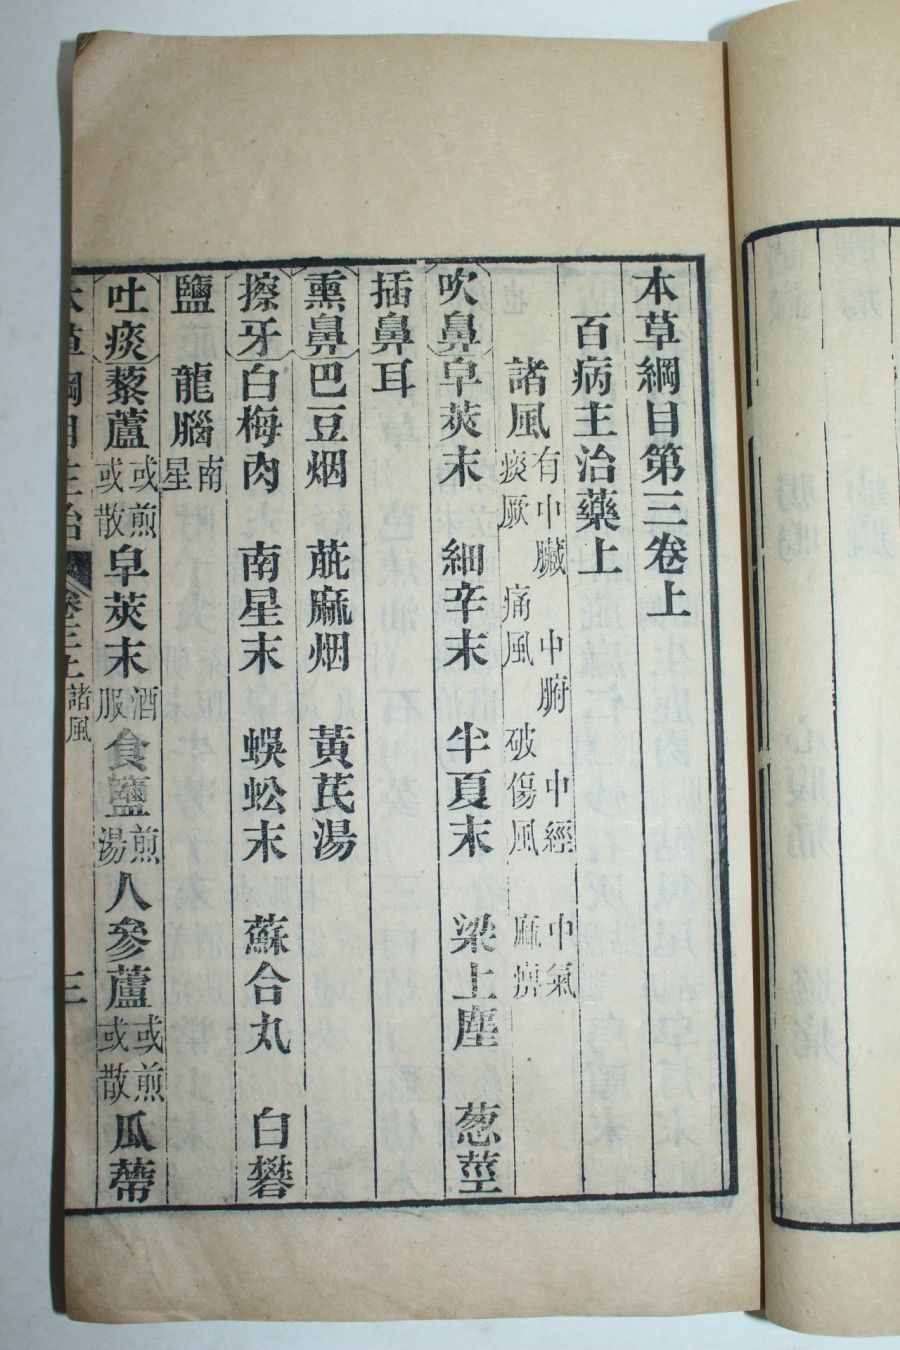 本草綱目第三卷上
百病主治藥上
諸風 有中臟 中腑 中經 中氣 痰厥 痛風 破傷風 麻痹
吹鼻 皁莢末 細辛末 半夏末 梁上塵 葱莖
插鼻耳
熏鼻 巴豆烟 萞麻烟 黃芪湯
擦牙 白梅肉 南星末 蜈蚣末 蘇合丸 白礬
鹽 龍腦 南星
吐痰 藜蘆 或煎或散 皁莢末 酒服 食鹽 煎湯 人參蘆 或煎或散 瓜蔕
本草綱目主治 卷三上 諸風 三